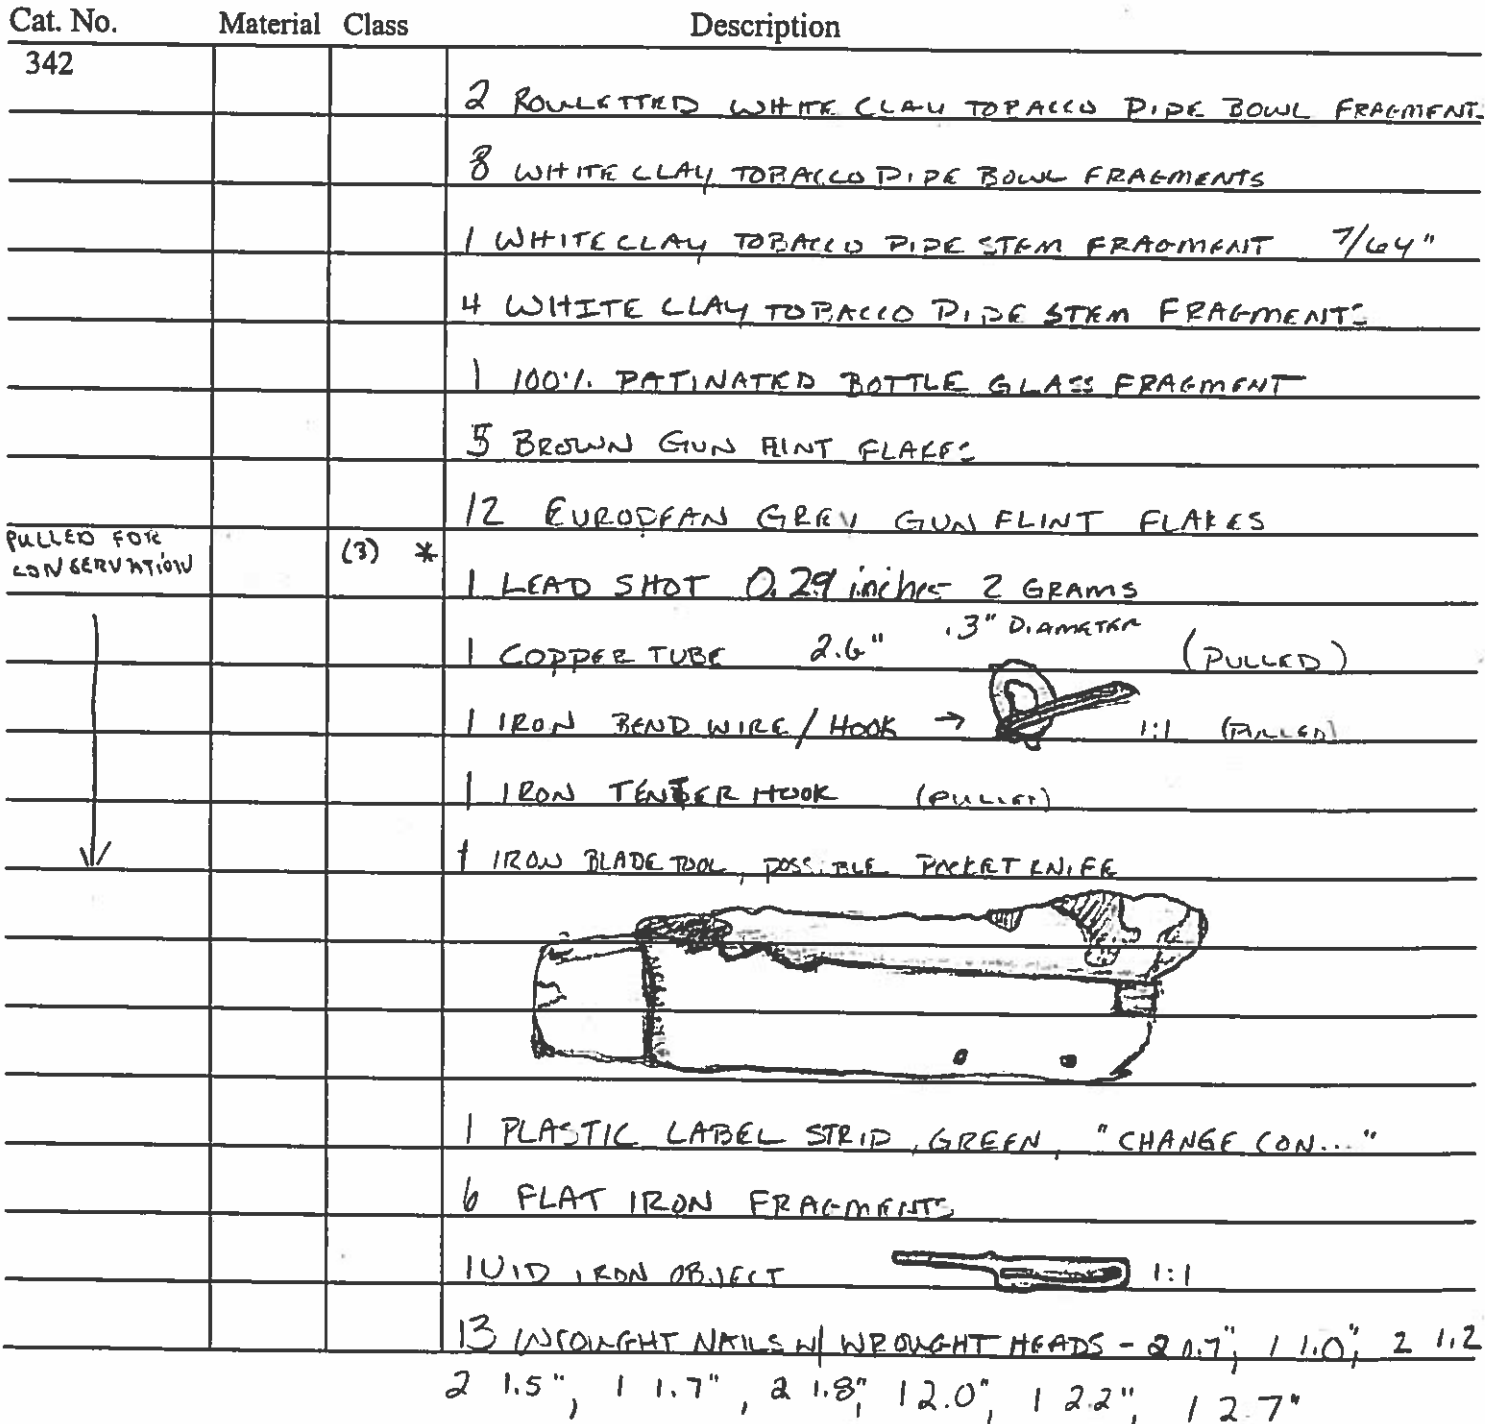 Cat. No. Material Class Description
342
2 ROULETTED WHITE CLAY TOBACCO PIPE BOWL FRAGMENTS
8 WHITE CLAY TOBACCO PIPE BOWL FRAGMENTS
1 WHITE CLAY TOBACCO PIPE STEM FRAGMENT 7/64"
4 WHITE CLAY TOBACCO PIPE STEM FRAGMENTS
1 100% PATINATED BOTTLE GLASS FRAGMENT
5 BROWN GUN FLINT FLAKES
12 EUROPEAN GREY GUN FLINT FLAKES
PULLED FOR
CONSERVATION
(3) *
1 LEAD SHOT 0.29 inches 2 GRAMS
1 COPPER TUBE 2.6" .3" DIAMETER (PULLED)
1 IRON BEND WIRE/HOOK → 1:1 (PULLED)
1 IRON TENTER HOOK (PULLED)
1 IRON BLADE TOOL, POSSIBLE POCKET KNIFE
1 PLASTIC LABEL STRIP, GREEN, "CHANGE CON..."
6 FLAT IRON FRAGMENTS
1 UID IRON OBJECT 1:1
13 WROUGHT NAILS W/ WROUGHT HEADS - 2 0.7", 1 1.0", 2 1.2
2 1.5", 1 1.7", 2 1.8", 1 2.0", 1 2.2", 1 2.7"